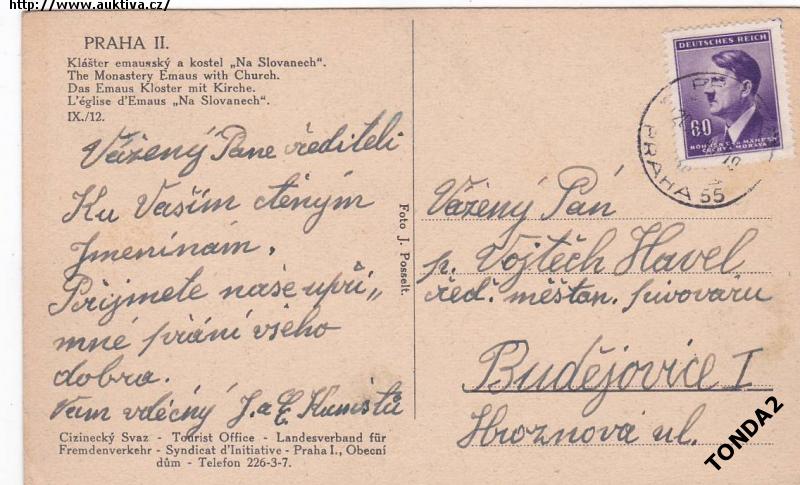 http://www.auktiva.cz/
PRAHA II.
Klášter emauzský a kostel „Na Slovanech".
The Monastery Emaus with Church.
Das Emaus Kloster mit Kirche.
L'église d'Emaus „Na Slovanech".
IX./12.
Vážený Pane řediteli
Ku Vašim ctěným
Jmeninám,
Přijmete naše upří„
mné přání všeho
dobra.
Vam vděčný J. a
Cizinecký Svaz - Tourist Office - Landesverband für
Fremdenverkehr - Syndicat d'Initiative - Praha I., Obecní
dům - Telefon 226-3-7.
Foto J. Posselt.
DEUTSCHES REICH
60
BÖHMEN UND MÄHREN
ČECHY A MORAVA
PRAHA 55
Vážený Pán
p. Vojtěch Havel
řed. měšťan. pivovaru
Budějovice I
Hroznová ul.
TONDA2